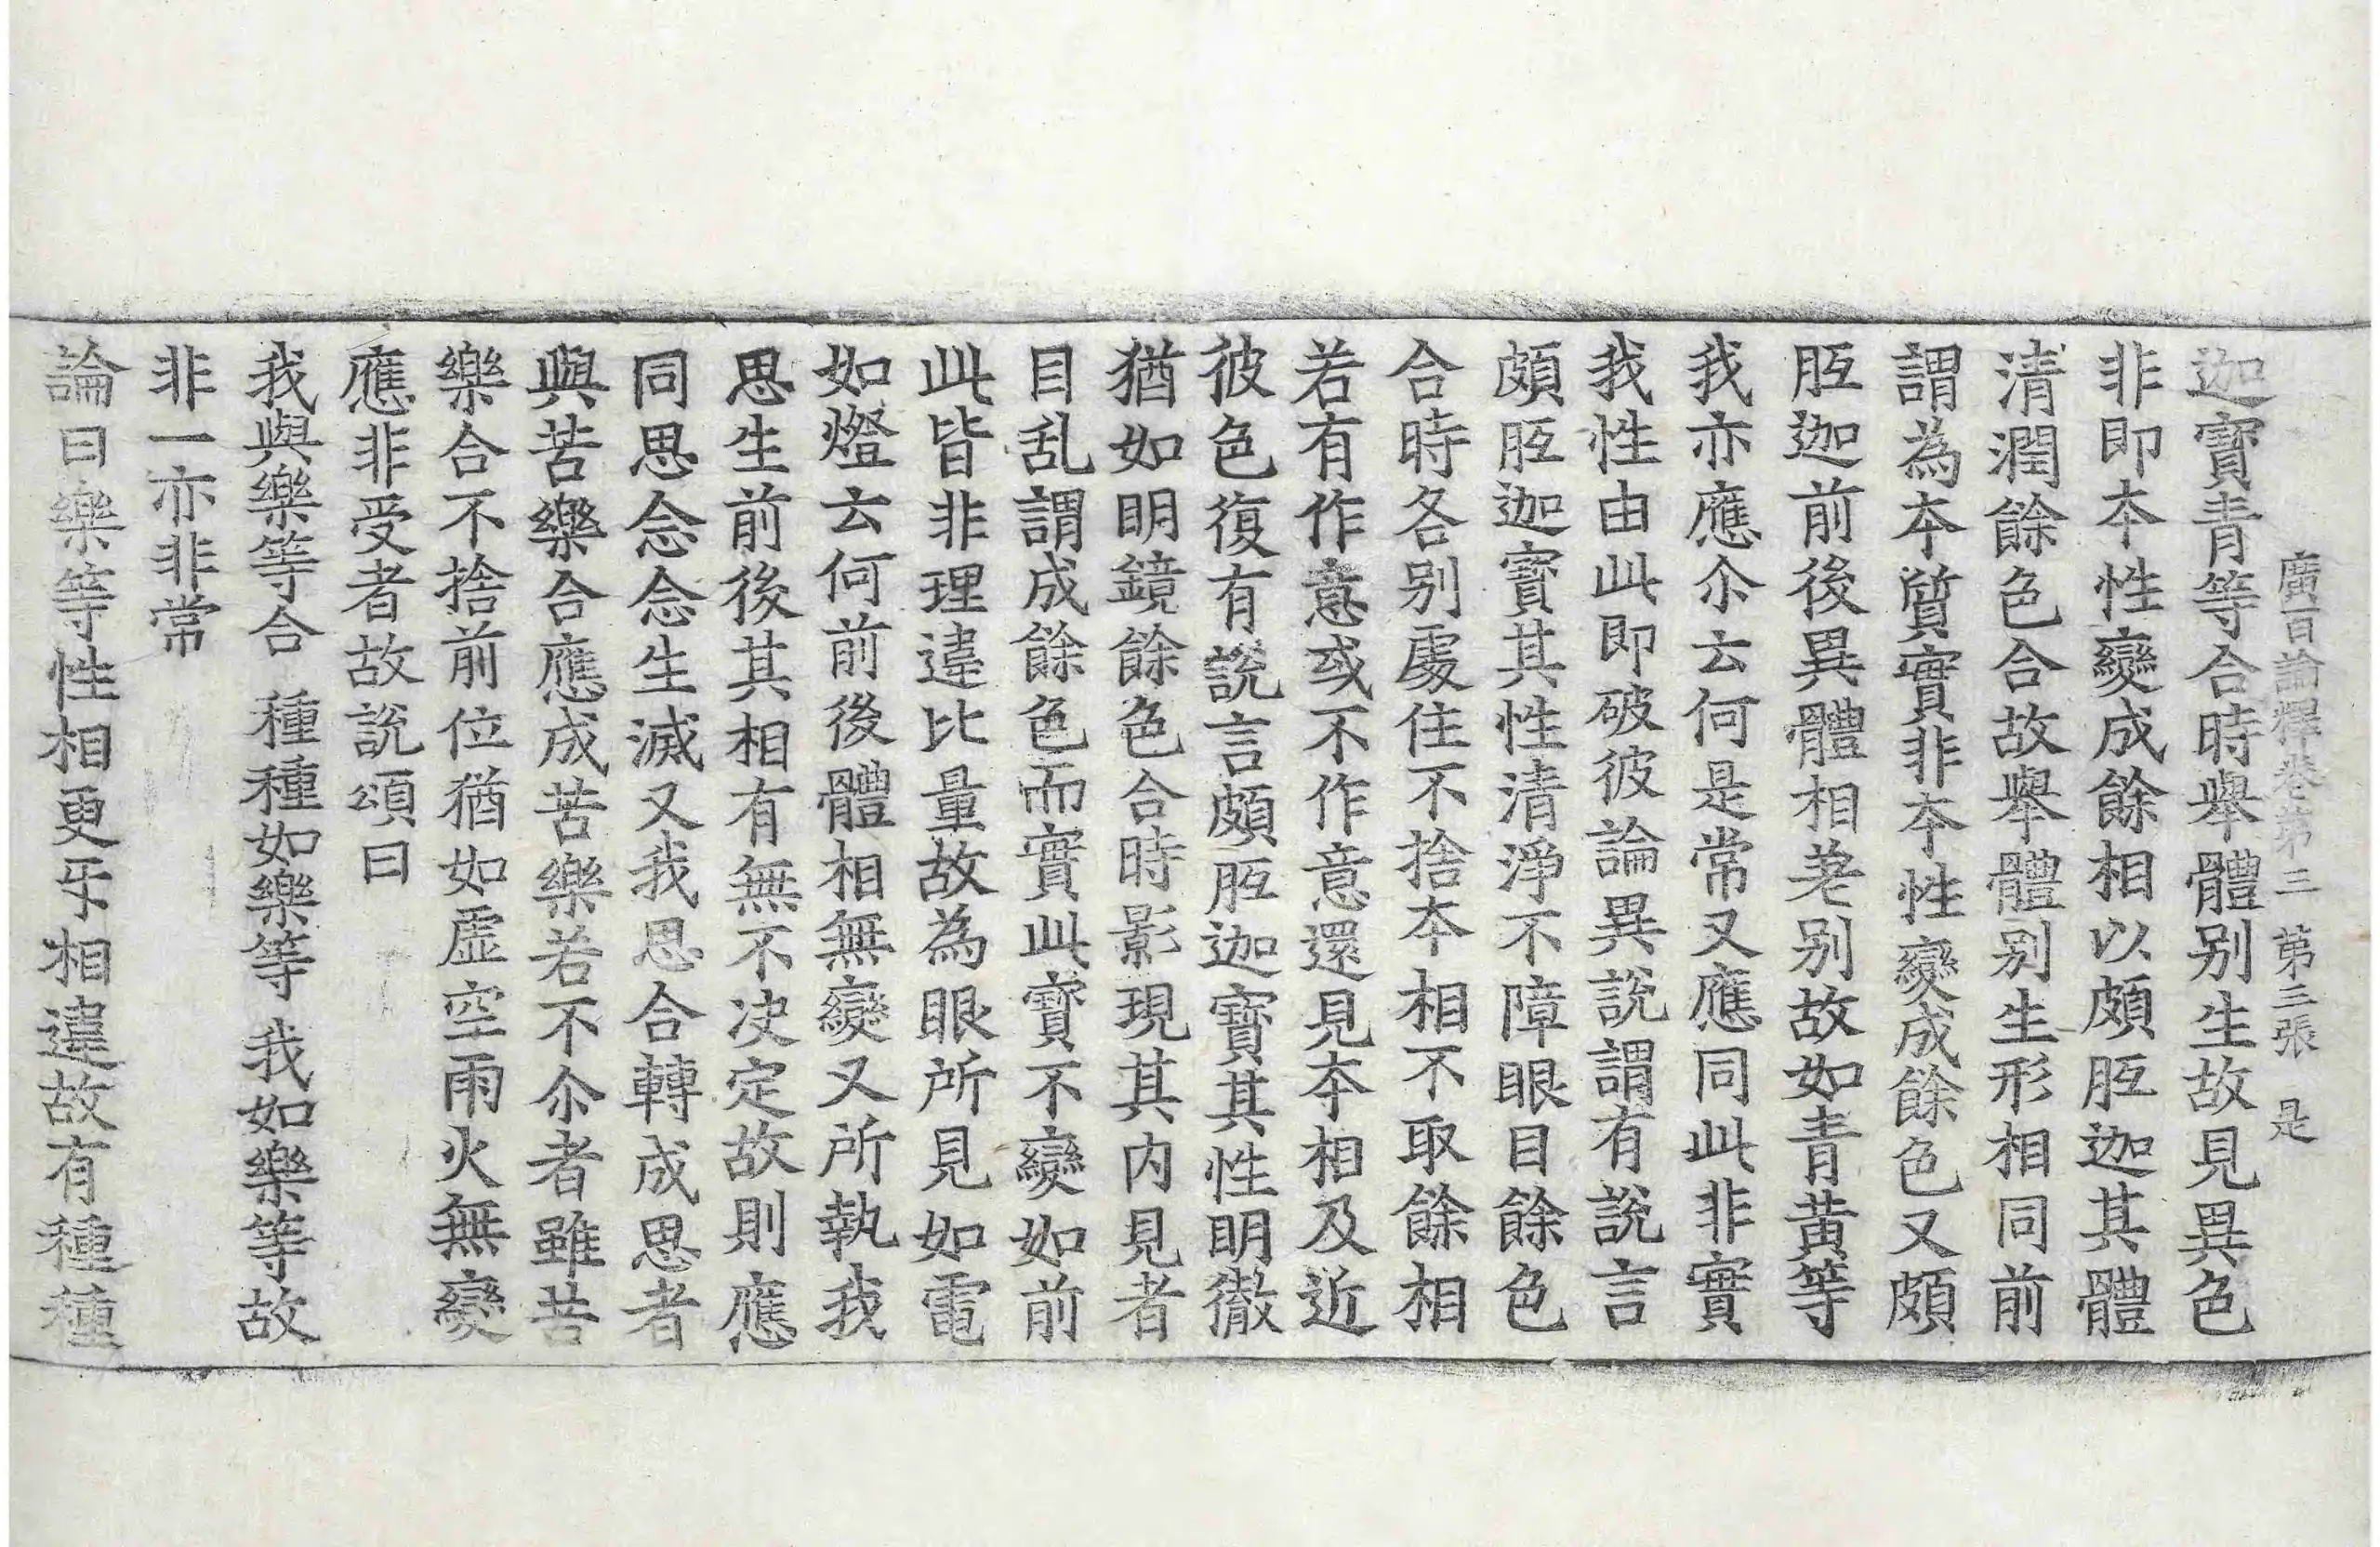 廣百論釋卷第三 第三張 是
迦寶青等合時舉體別生故見異色
非即本性變成餘相以頗胝迦其體
清潤餘色合故舉體別生形相同前
謂為本質實非本性變成餘色又頗
胝迦前後異體相差別故如青黃等
我亦應尒云何是常又應同此非實
我性由此即破彼論異說謂有說言
頗胝迦寶其性清淨不障眼目餘色
合時各別處住不捨本相不取餘相
若有作意或不作意還見本相及近
彼色復有說言頗胝迦寶其性明徹
猶如明鏡餘色合時影現其內見者
目乱謂成餘色而實此寶不變如前
此皆非理違比量故為眼所見如電
如燈云何前後體相無變又所執我
思生前後其相有無不决定故則應
同思念念生滅又我思合轉成思者
與苦樂合應成苦樂若不尒者雖苦
樂合不捨前位猶如虛空雨火無變
應非受者故說頌曰
我與樂等合 種種如樂等 我如樂等故
非一亦非常
論曰樂等性相更乎相違故有種種